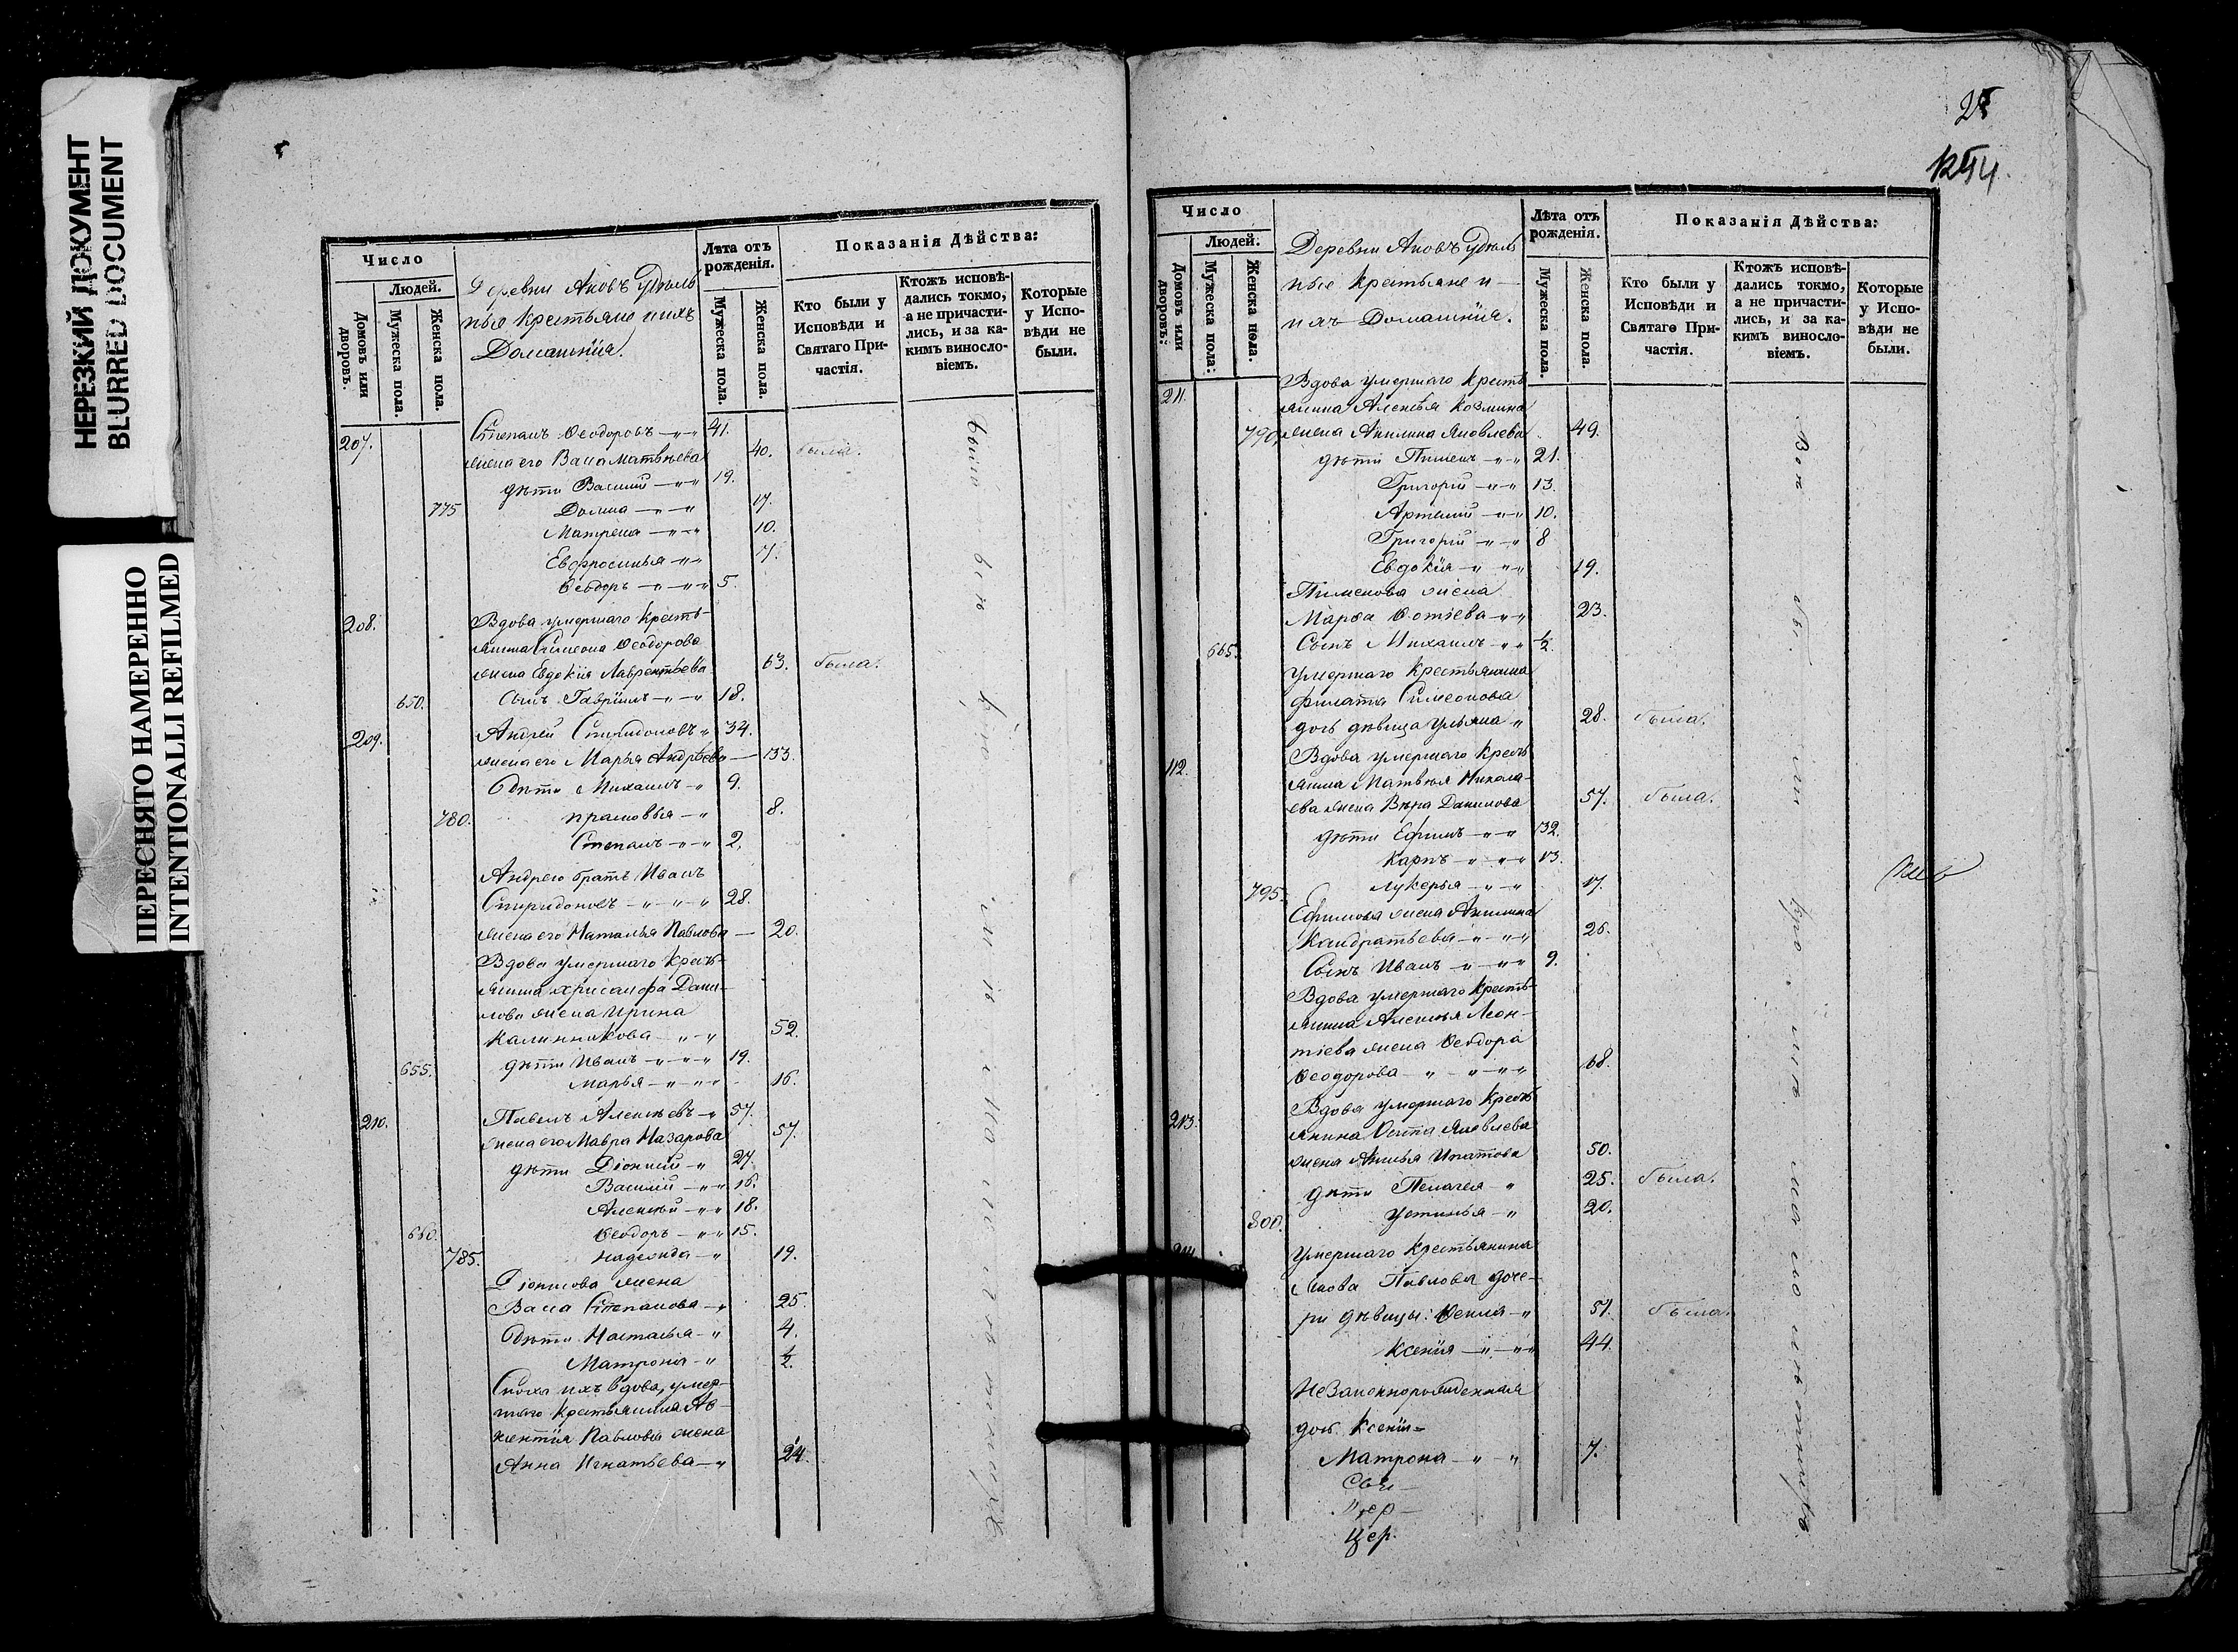 НЕРЕЗКИЙ ДОКУМЕНТ
BLURRED DOCUMENT
ПЕРЕСНЯТО НАМЕРЕННО
INTENTIONALLI REFILMED
Число
Людей.
Домовъ или дворовъ.
Мужеска пола.
Женска пола.
Деревни Аковъ Удѣль
ные Крестьяне и ихъ
Домашнія.
Лѣта отъ рожденія.
Мужеска пола.
Женска пола.
Показанія Дѣйства:
Кто были у Исповѣди и Святаго Причастія.
Ктожъ исповѣдались токмо, а не причастились, и за какимъ винословіемъ.
Которые у Исповѣди не были.
207. Степанъ Ѳеодоровъ 41.
жена его Васа Матвѣева 40. была.
дѣти Василій 19.
775 Домна 17.
Матрена 10.
Евфросинья 7.
Ѳеодоръ 5.
208. Вдова умершаго Кресть-
янина Симеона Ѳеодорова
жена Евдокія Лаврентьева 63. была.
650. Сынъ Гавріилъ 18.
209. Андрей Спиридоновъ 34.
жена его Марья Андрѣева 33.
дѣти Михаилъ 9.
780. 8.
Степанъ 2.
Андрея братъ Иванъ
Спиридоновъ 28.
жена его Наталья Павлова 20.
Вдова умершаго Кресть-
янина Хрисанфа Дани-
лова жена Ирина
Калинникова 52.
655. дѣти Иванъ 19.
Марья 16.
210. Павелъ Алексѣевъ 57.
жена его Мавра Назарова 57.
дѣти Діонисій 27.
Василій 16.
Алексѣй 18.
660. Ѳеодоръ 15.
785. Надежда 19.
Діонисова жена
Васа Степанова 25.
дѣти Настасья 4.
Матрона ½.
Сноха ихъ вдова, умер-
шаго Крестьянина
Павлова жена
Анна Игнатьева 24.
25
1244.
Число
Людей.
Домовъ или дворовъ:
Мужеска пола:
Женска пола.
Деревни Аковъ Удѣль
ные Крестьяне и
ихъ Домашнія.
Лѣта отъ рожденія.
Мужеска пола.
Женска пола.
Показанія Дѣйства:
Кто были у Исповѣди и Святаго Причастія.
Ктожъ исповѣдались токмо, а не причастились, и за какимъ винословіемъ.
Которые у Исповѣди не были.
211. Вдова умершаго Кресть
янина Алексѣя Козмина
790. жена Акилина Яковлева 49.
дѣти Пименъ 21.
Григорій 13.
Артемій 10.
Григорій 8
Евдокія 19.
Пименова жена
Марѳа Фотіева 23.
665. Сынъ Михаилъ ½.
Умершаго Крестьянина
Филата Симеонова
дочь дѣвица Ульяна 28. была.
112. Вдова умершаго Кресть
янина Матвѣя Никола-
ева жена Вѣра Данилова 57. была.
дѣти Ефимъ 32.
Карпъ 13.
795. Лукерья 17.
Ефимова жена Акилина
Кандратьева 26.
Сынъ Иванъ 9.
Вдова умершаго Кресть-
янина Алексѣя Леон-
тіева жена Ѳеодора
Ѳеодорова 68.
213. Вдова умершаго Кресть
янина Яковлева
жена Ипатова 50.
дѣти Пелагея 25. была.
800. Устинья 20.
214. Умершаго Крестьянина
Іакова Павлова доче-
ри дѣвицы: Ѳекла 51. была.
Ксенія 44.
Незаконнорожденная
доч. Ксеніи
Матрона 7.